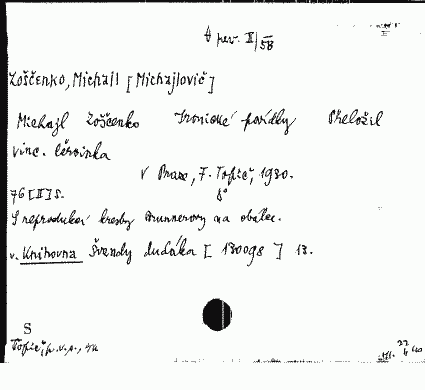 rev. II/58
Zoščenko, Michail [Michajlovič]
Michajl Zoščenko Ironické povídky Přeložil
Vinc. Červinka
V Praze, F. Topič, 1930.
8°
76 [II] s.
S reprodukcí kresby Brunnerovy na obálce.
v. Knihovna Švandy dudáka [ 130098 ] 13.
S